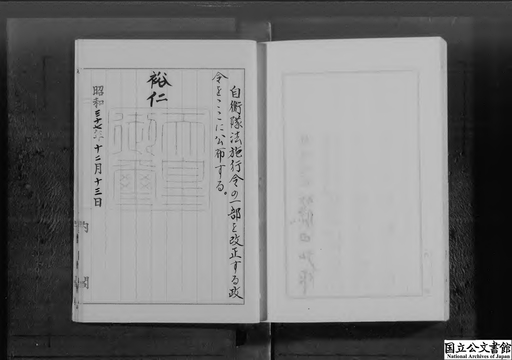 自衛隊法施行令の一部を改正する政
令をここに公布する。
裕仁
天皇御璽
昭和三十七年十二月十三日
内閣
国立公文書館
National Archives of Japan